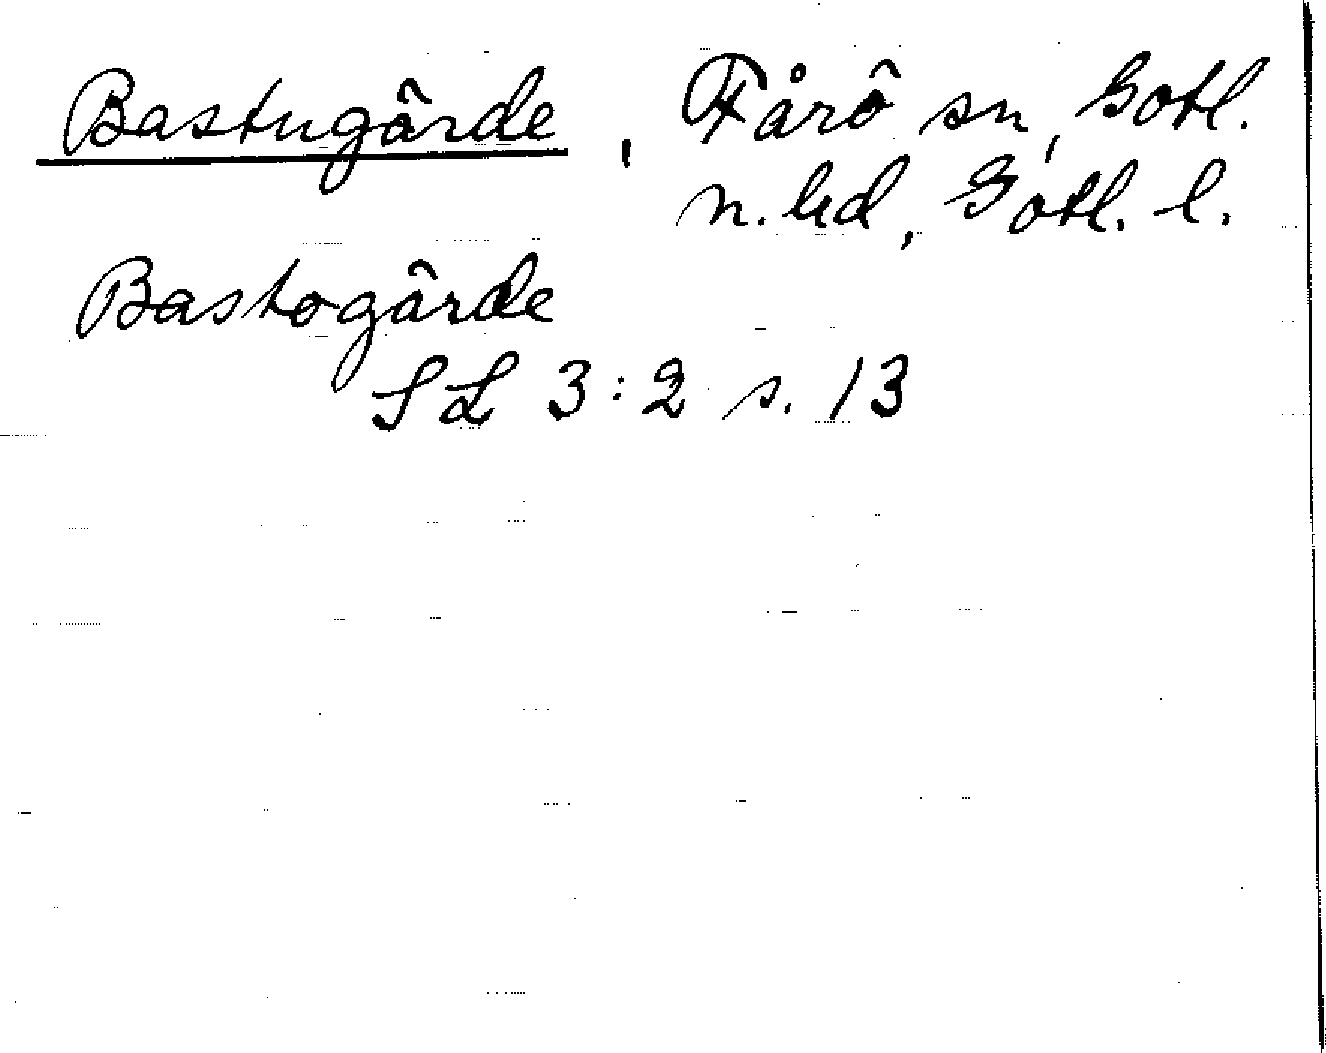 Bastugärde, Fårö sn, Gotl.
n. hd, Gotl. l.
Bastogärde
SL 3:2 s. 13